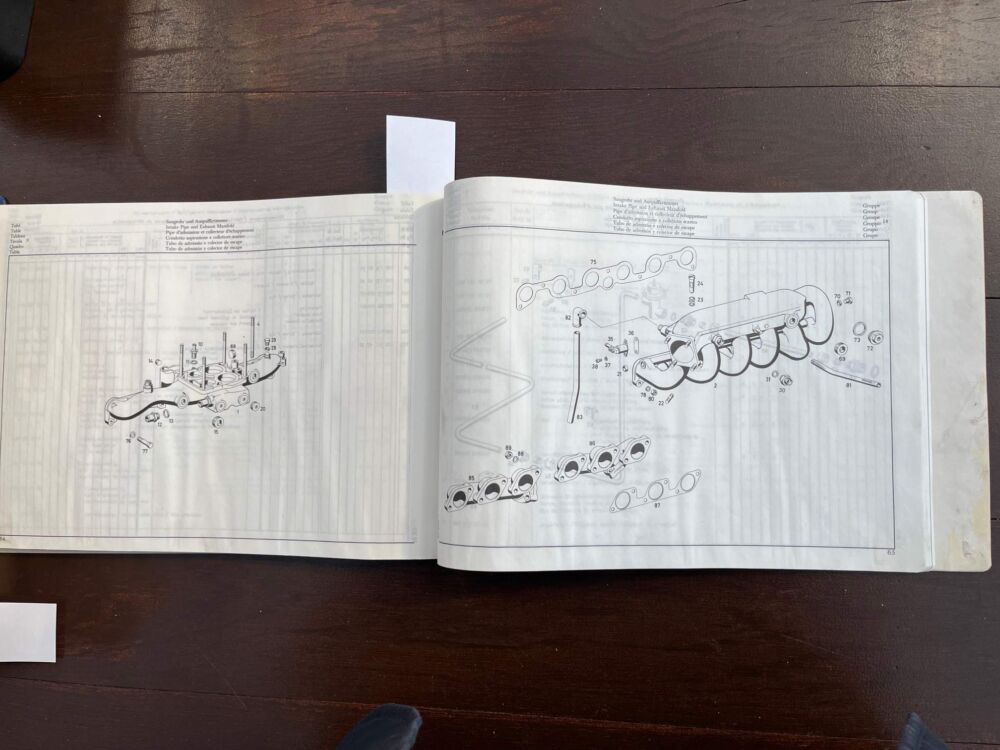 Tafel
Table
Tableau
Tavola
Quadro
Tabla
Saugrohr und Auspuffkrümmer
Intake Pipe and Exhaust Manifold
Pipe d'admission et collecteur d'échappement
Condotto aspirazione e collettore scarico
Tubo de admissão e colector de escape
Tubo de admisión y colector de escape
4
14
12
13
1
20
15
76
77
Saugrohr und Auspuffkrümmer
Intake Pipe and Exhaust Manifold
Pipe d'admission et collecteur d'échappement
Condotto aspirazione e collettore scarico
Tubo de admissão e colector de escape
Tubo de admisión y colector de escape
Gruppe
Group
Groupe 14
Gruppo
Grupo
Grupo
75
24
23
82
35
36
38
37
21
78
80
22
2
31
30
70
71
73
72
69
81
83
89
88
86
85
87
65